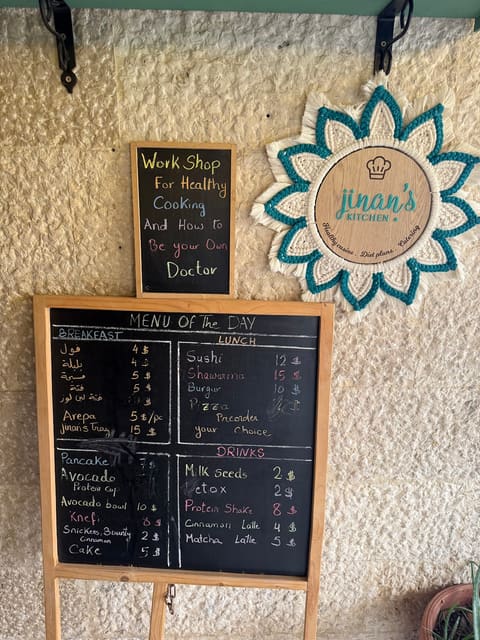 Work Shop
For Healthy
Cooking
And How to
Be your Own
Doctor
jinan's
KITCHEN
Healthy cuisine . Diet plans . Catering
MENU OF The DAY
BREAKFAST
فول 4 $
بليلة 4 $
5 $
فتة 5 $
فتة 5 $
Arepa 5 $/pc
Jinan's Tray 15 $
Pancake
Avocado
Protein Cup
Avocado bowl 10 $
Knef 8 $
Snickers, Bounty 2 $
Cinnamon
Cake 5 $
LUNCH
Sushi 12 $
Shawarma 15 $
Burgur 10 $
Pizza
Preorder
your Choice
DRINKS
Milk Seeds 2 $
Detox 2 $
Protein Shake 8 $
Cinnamon Latte 4 $
Matcha Latte 5 $